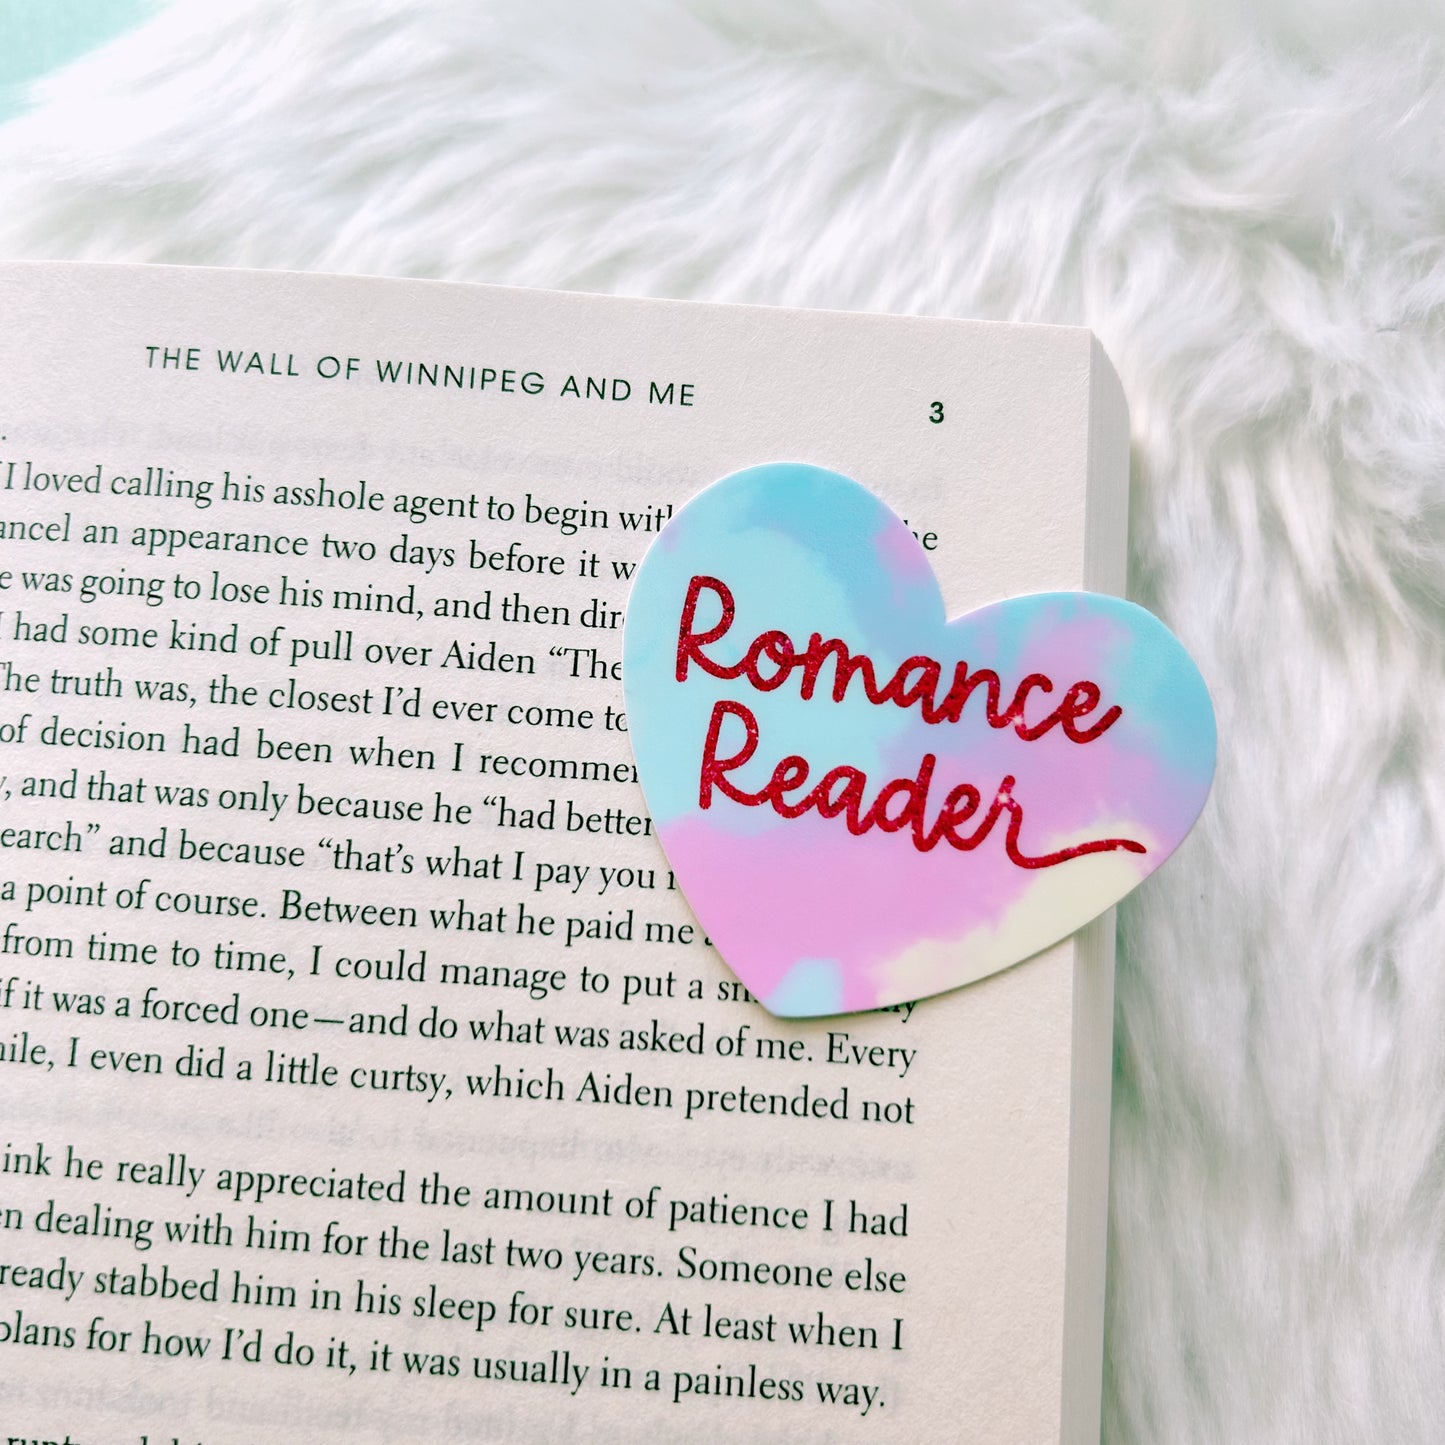 THE WALL OF WINNIPEG AND ME
3
I loved calling his asshole agent to begin
an appearance two days before it
was going to lose his mind, and then
I had some kind of pull over Aiden “The
The truth was, the closest I’d ever come to
of decision had been when I
and that was only because he “had better
and because “that’s what I pay you
a point of course. Between what he paid me
from time to time, I could manage to put a
if it was a forced one—and do what was asked of me. Every
I even did a little curtsy, which Aiden pretended not
he really appreciated the amount of patience I had
dealing with him for the last two years. Someone else
stabbed him in his sleep for sure. At least when I
plans for how I’d do it, it was usually in a painless way.
Romance
Reader